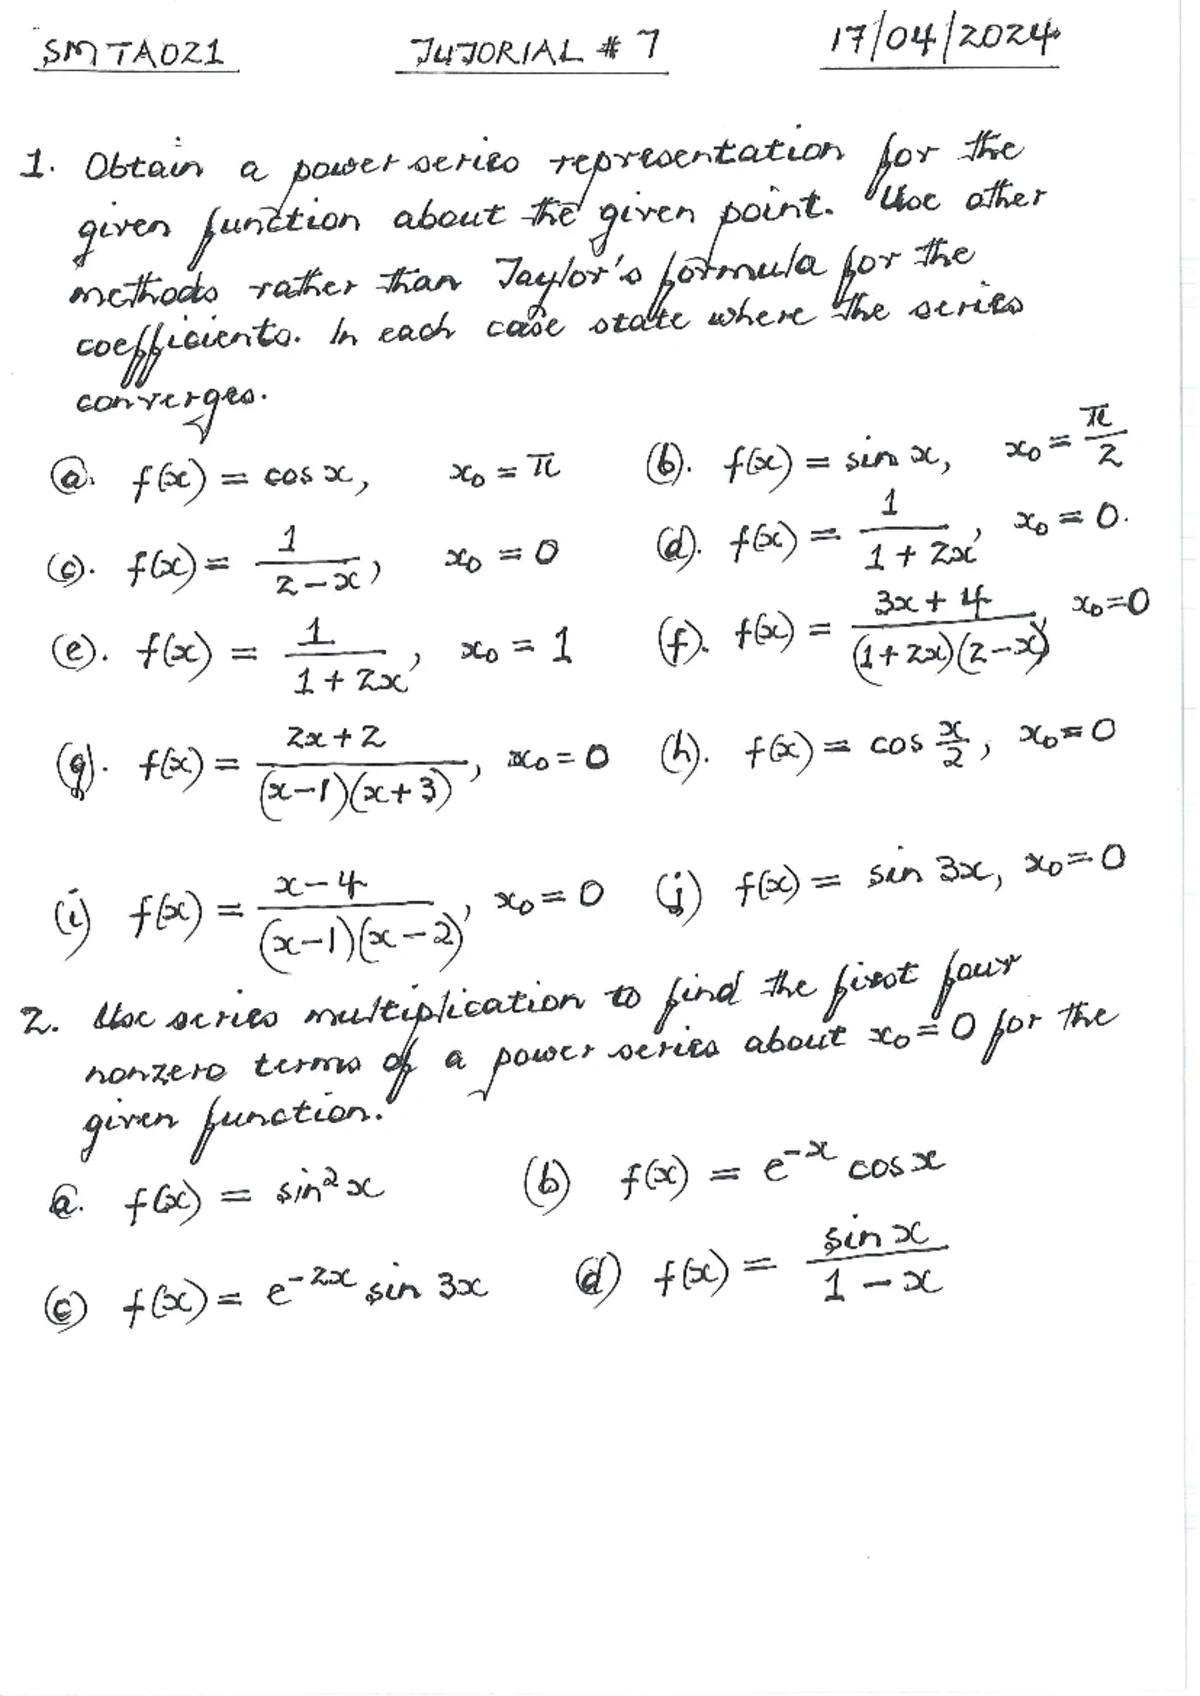 SMTA021 TUTORIAL # 7 17/04/2024
1. Obtain a power series representation for the
given function about the given point. Use other
methods rather than Taylor's formula for the
coefficients. In each case state where the series
converges.
(a). f(x) = cos x, x₀ = π (b). f(x) = sin x, x₀ = π/2
(c). f(x) = 1/(2-x), x₀ = 0 (d). f(x) = 1/(1+2x), x₀ = 0.
(e). f(x) = 1/(1+2x), x₀ = 1 (f). f(x) = (3x+4)/((1+2x)(2-x)), x₀=0
(g). f(x) = (2x+2)/((x-1)(x+3)), x₀=0 (h). f(x) = cos x/2, x₀=0
(i) f(x) = (x-4)/((x-1)(x-2)), x₀=0 (j) f(x) = sin 3x, x₀=0
2. Use series multiplication to find the first four
nonzero terms of a power series about x₀=0 for the
given function.
a. f(x) = sin²x (b) f(x) = e^{-x} cos x
(c) f(x) = e^{-2x} sin 3x (d) f(x) = sin x/(1-x)